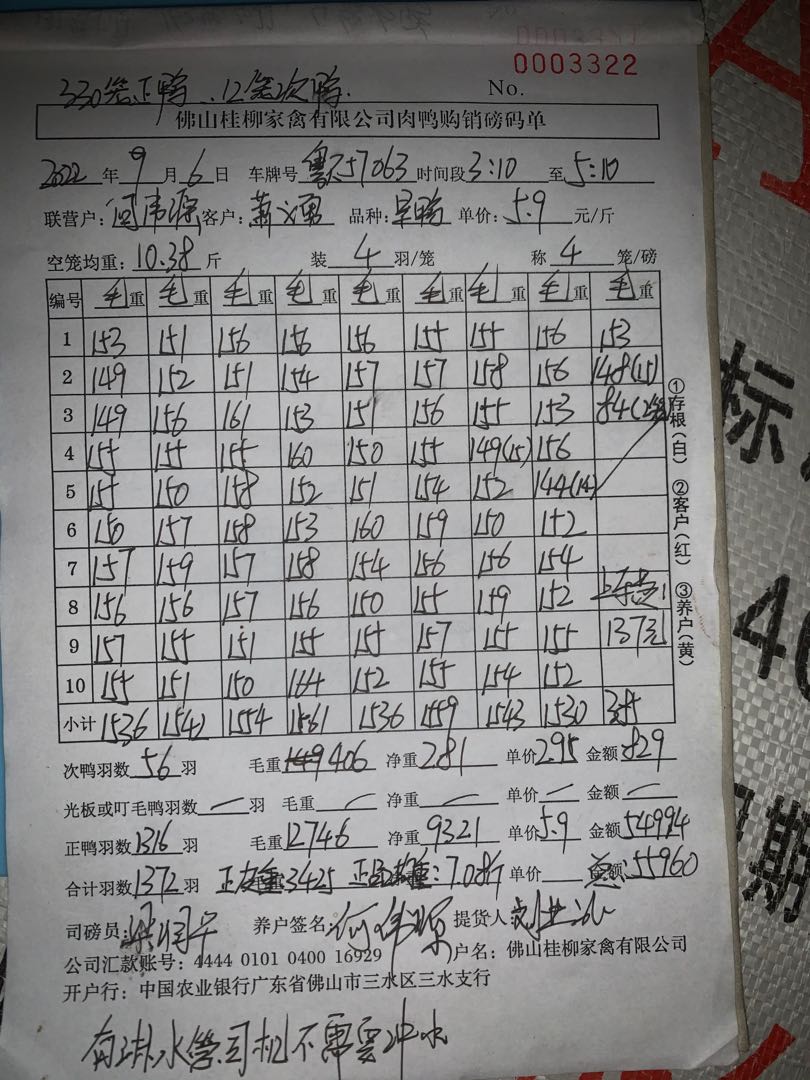 0003322
330笼正鸭..12笼次鸭. No.
佛山桂柳家禽有限公司肉鸭购销磅码单
2022年9月6日 车牌号 57063 时间段3:10 至5:10
联营户: 客户: 品种: 单价:5.9元/斤
空笼均重:10.38斤 装4羽/笼 称4笼/磅
编号 毛重 毛重 毛重 毛重 毛重 毛重 毛重 毛重 毛重
1 153 151 156 156 156 155 155 156 153
2 149 152 151 154 157 157 158 156 148(15)
3 149 156 161 153 151 156 155 153 84(2笼)
4 155 155 155 160 150 155 149(15) 156
5 155 150 158 152 151 154 152 144(14)
6 150 157 158 153 160 159 150 152
7 157 159 157 158 154 156 156 154
8 156 156 157 156 150 155 159 152
9 157 155 151 155 155 157 155 155 137元
10 155 151 150 164 152 155 154 152
小计 1536 1542 1554 1561 1536 1559 1543 1530 385
次鸭羽数56羽 毛重406 净重281 单价2.95 金额829
光板或叮毛鸭羽数—羽 毛重— 净重— 单价— 金额—
正鸭羽数1316羽 毛重12746 净重9321 单价5.9 金额54994
合计羽数1372羽 正皮重:3425 :7.08斤 单价 总金额:55960
司磅员: 养户签名: 提货人:
公司汇款账号:4444 0101 0400 16929 户名:佛山桂柳家禽有限公司
开户行:中国农业银行广东省佛山市三水区三水支行
有排水管司机不需要冲水
①存根(白) ②客户(红) ③养户(黄)
标
期